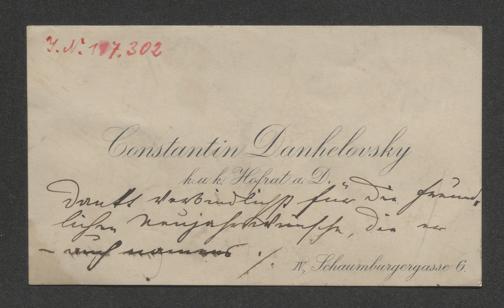 J. N. 117.302
Constantin Danhelovsky
k. u. k. Hofrat a. D.
dankt verbindlichst für die freund-
lichen Neujahrswünsche, die er
– auch namens ·/.
IV, Schaumburgergasse 6.